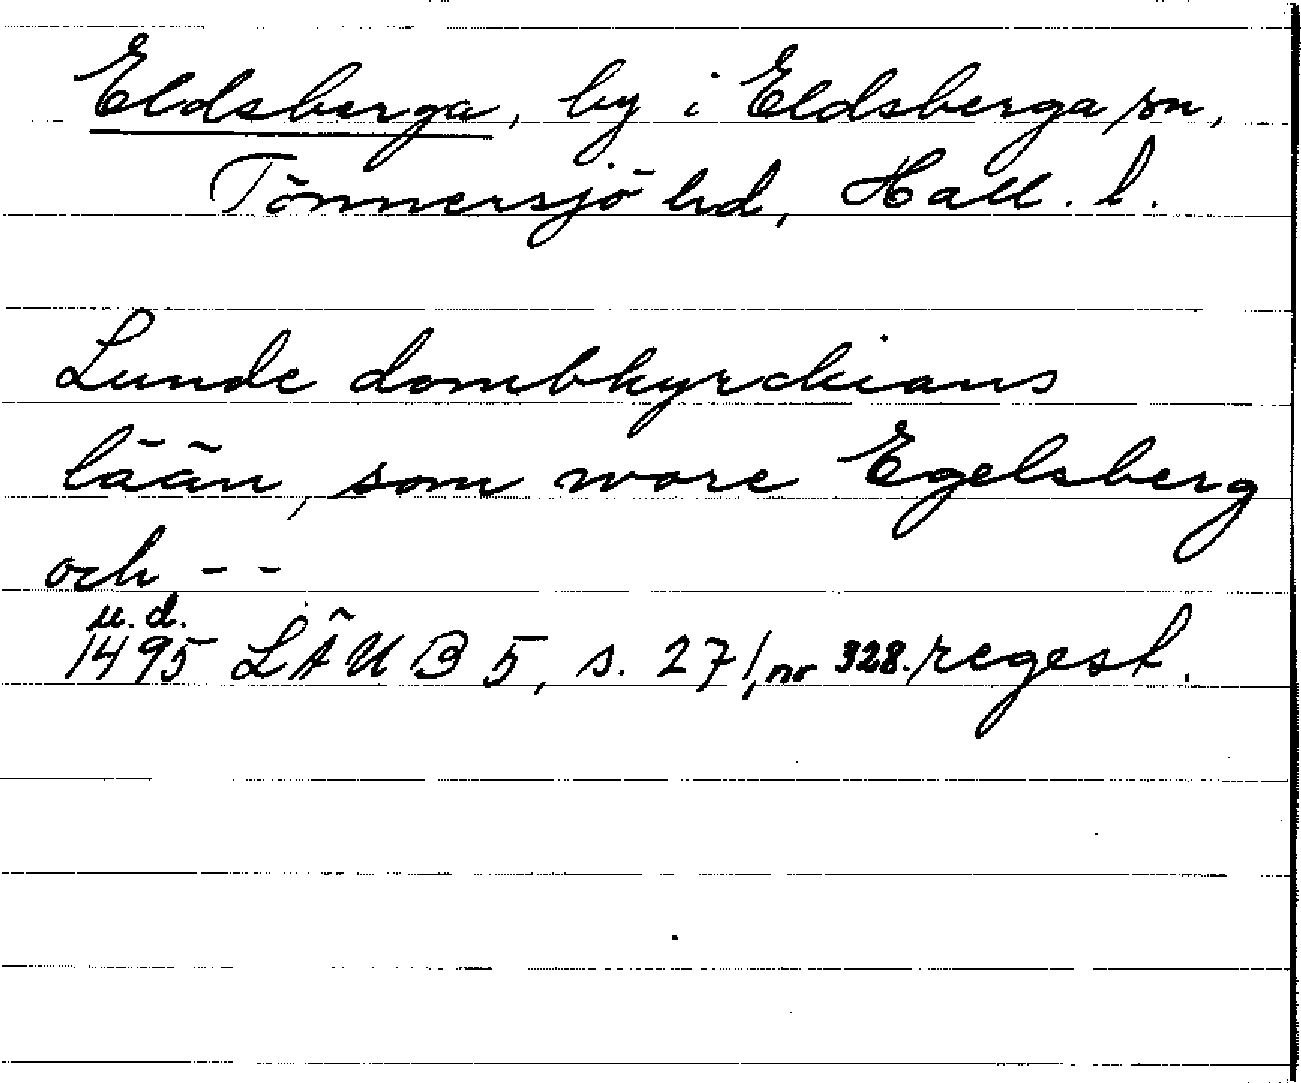 Eldsberga, by i Eldsberga sn,
Tönnersjö hd, Hall. l.
Lunde dombkyrckians
lään, som wore Egelsberg
och - -
u. d.
1495 LÄUB 5, s. 271, nr 328. regest.